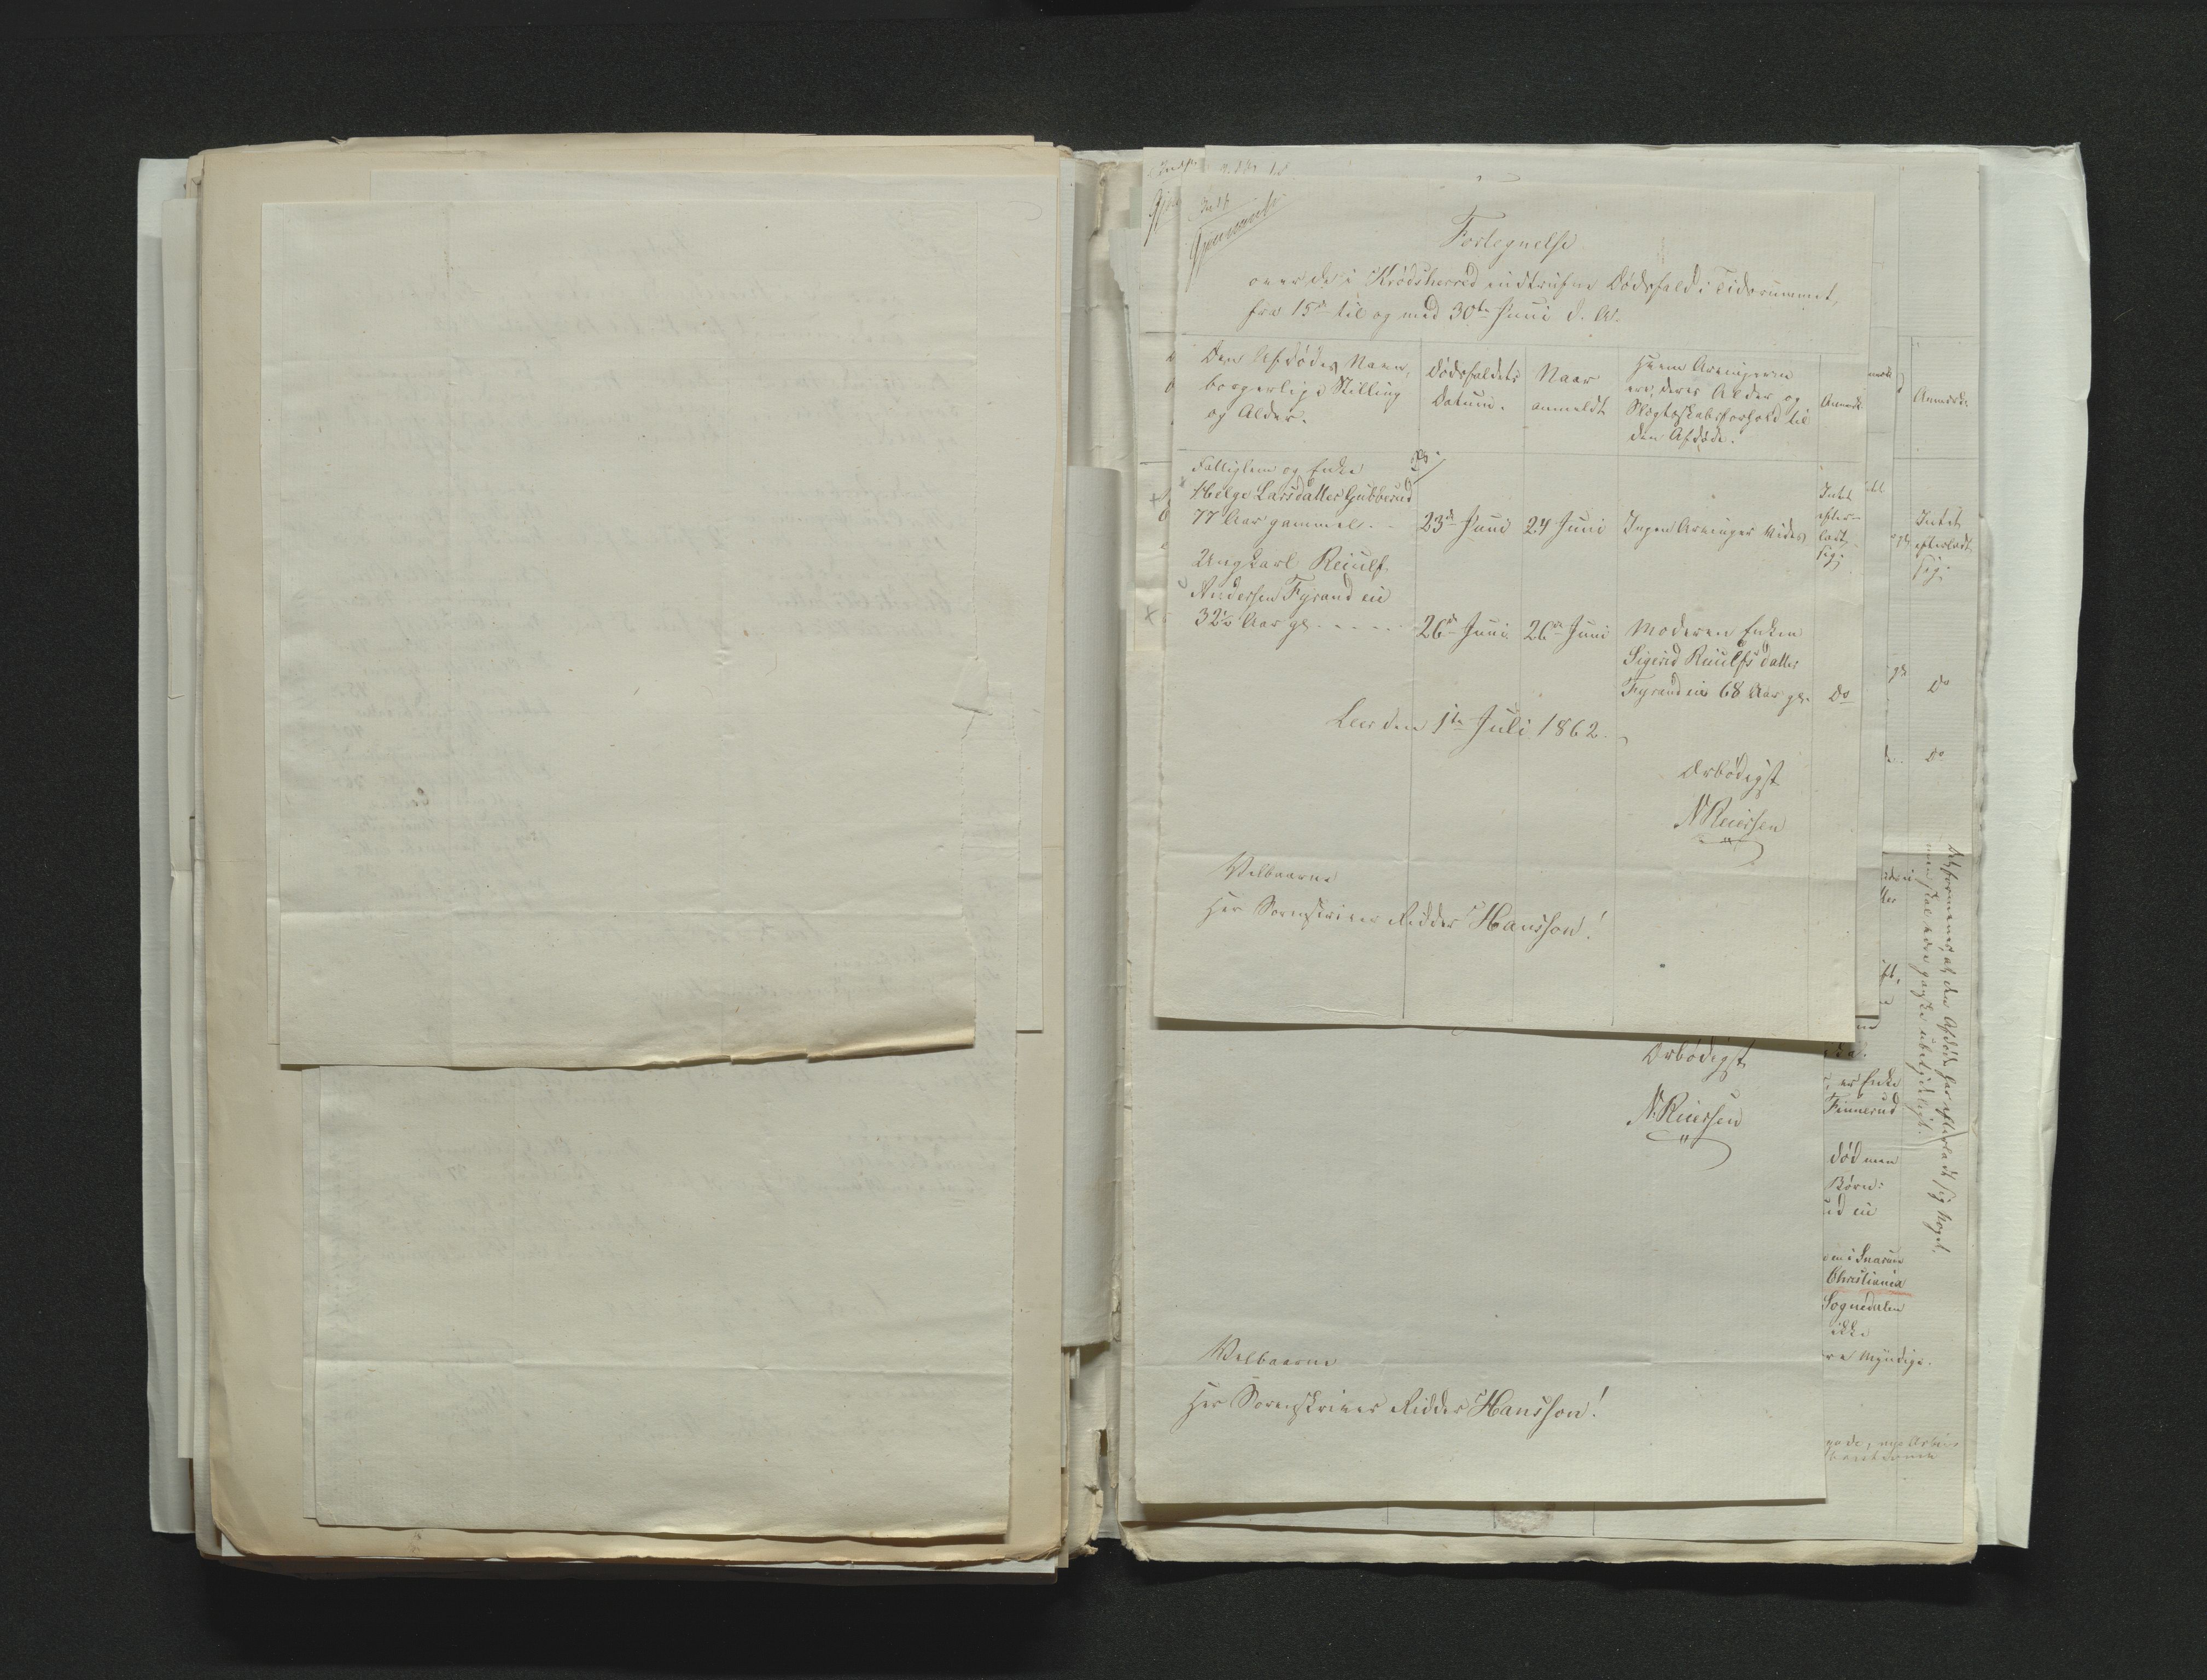 Indk
Gjennemset
Fortegnelse
over de i Krødsherred indtrufne Dødsfald i Tidsrummet,
fra 15de til og med 30te Juni d. A.
Den Afdødes Navn,
borgerlige Stilling
og Alder.
Dødsfaldets
Datum.
Naar
anmeldt
Hvem Arvingerne
ere, deres Alder og
Slægtskabsforhold til
den Afdøde.
Anmærk.
Fattiglem og Enke
Helge Larsdatter Gubberud
77 Aar gammel. 23de Juni 24 Juni Ingen Arvinger vides
Intet
efter-
ladt
sig.
Ungkarl Reiulf
Andersen Fyrand eie
32½ Aar gl. 26de Juni 26de Juni Moderen Enken
Sigrid Reiulfsdatter
Fyrand eie 68 Aar gl. Do
Leer den 1te Juli 1862.
Ærbødigst
N Reiersen
Velbaarne
Her Sorenskriver Ridder Hansson!
Ærbødigst
N. Reiersen
Velbaarne
Her Sorenskriver Ridder Hansson!
Anmærk.
Intet
efterladt
sig.
Do
Do
er Enke
Finnerud
død men
Børn:
eie
i Snarum
Christiania
Sognedalen
ikke
Myndige.
Det formenes, at den Afdøde har efterladt sig Noget,
men skal være ganske ubetydeligt.